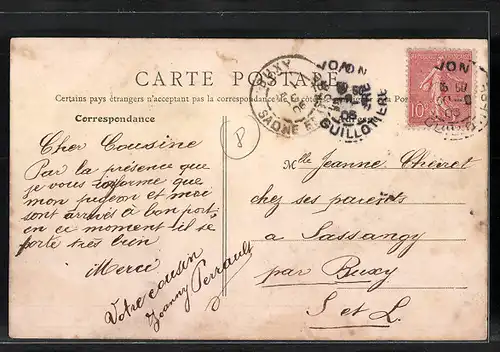 CARTE POSTALE
Certains pays étrangers n'acceptant pas la correspondance de ce côté
Correspondance
Adresse
Cher Cousine
Par la présence que
je vous informe que
mon pigeon et moi
sont arrivés à bon port
en ce moment il se
porte très bien
Merci
Votre cousin
Joanny Perrault
8
Mlle Jeanne
chez ses parents
a Sassangy
par Buxy
S et L.
BUXY
SAONE ET
LYON
GUILLOTIERE
10